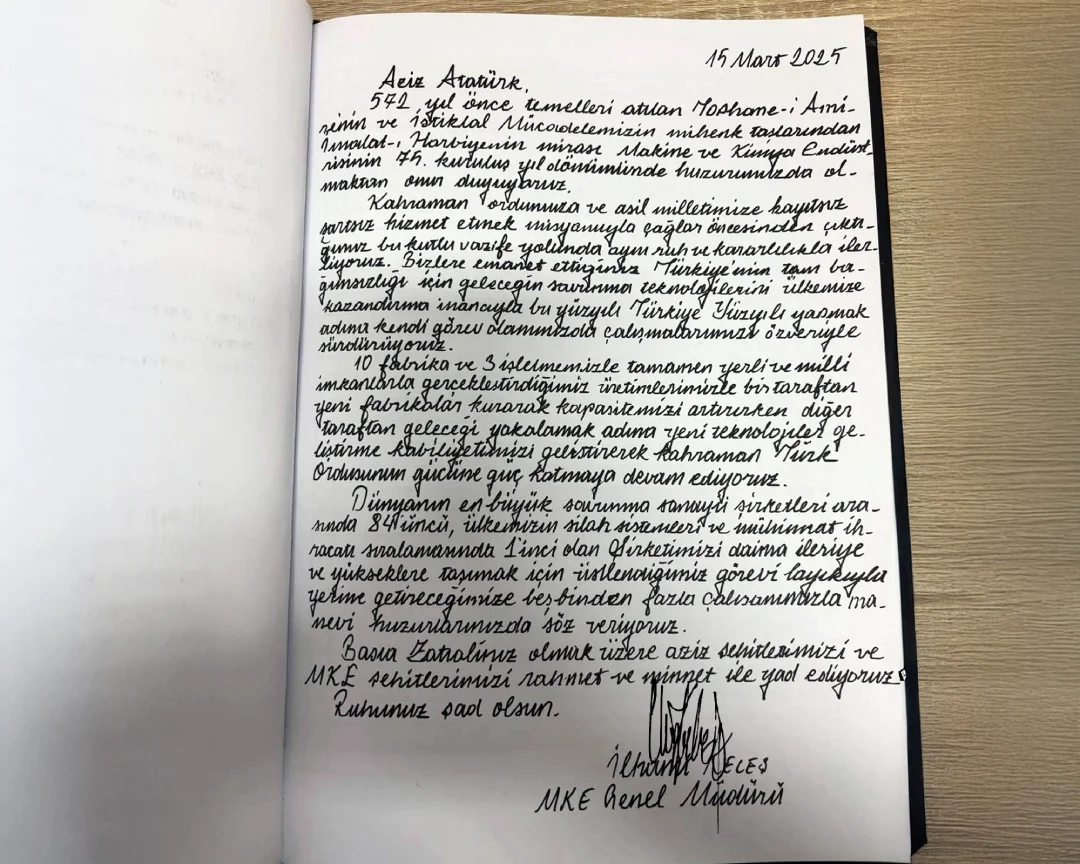 15 Mart 2025
Aziz Atatürk,
572 yıl önce temelleri atılan Tophane-i Ami-
rinin ve İstiklal Mücadelemizin mihenk taşlarından
İmalat-ı Harbiyenin mirası Makine ve Kimya Endüst-
risinin 75. kuruluş yıl dönümünde huzurunuzda ol-
maktan onur duyuyoruz.
Kahraman ordumuza ve asil milletimize kayıtsız
şartsız hizmet etmek misyonuyla çağlar öncesinden çıktı-
ğımız bu kutlu vazife yolunda aynı ruh ve kararlılıkla iler-
liyoruz. Bizlere emanet ettiğiniz Türkiye'nin tam ba-
ğımsızlığı için geleceğin savunma teknolojilerini ülkemize
kazandırma inancıyla bu yüzyılı Türkiye Yüzyılı yapmak
adına kendi görev alanımızda çalışmalarımızı özveriyle
sürdürüyoruz.
10 fabrika ve 3 işletmemizle tamamen yerli ve milli
imkanlarla gerçekleştirdiğimiz üretimlerimizle bir taraftan
yeni fabrikalar kurarak kapasitemizi artırırken diğer
taraftan geleceği yakalamak adına yeni teknolojiler ge-
liştirme kabiliyetimizi geliştirerek kahraman Türk
Ordusunun gücüne güç katmaya devam ediyoruz.
Dünyanın en büyük savunma sanayii şirketleri ara-
sında 84'üncü, ülkemizin silah sistemleri ve mühimmat ih-
racatı sıralamasında 1'inci olan Şirketimizi daima ileriye
ve yükseklere taşımak için üstlendiğimiz görevi layıkıyla
yerine getireceğimize beş binden fazla çalışanımızla ma-
nevi huzurlarınızda söz veriyoruz.
Başta Zatıaliniz olmak üzere aziz şehitlerimizi ve
MKE şehitlerimizi rahmet ve minnet ile yad ediyoruz.
Ruhunuz şad olsun.
İlhami KELEŞ
MKE Genel Müdürü